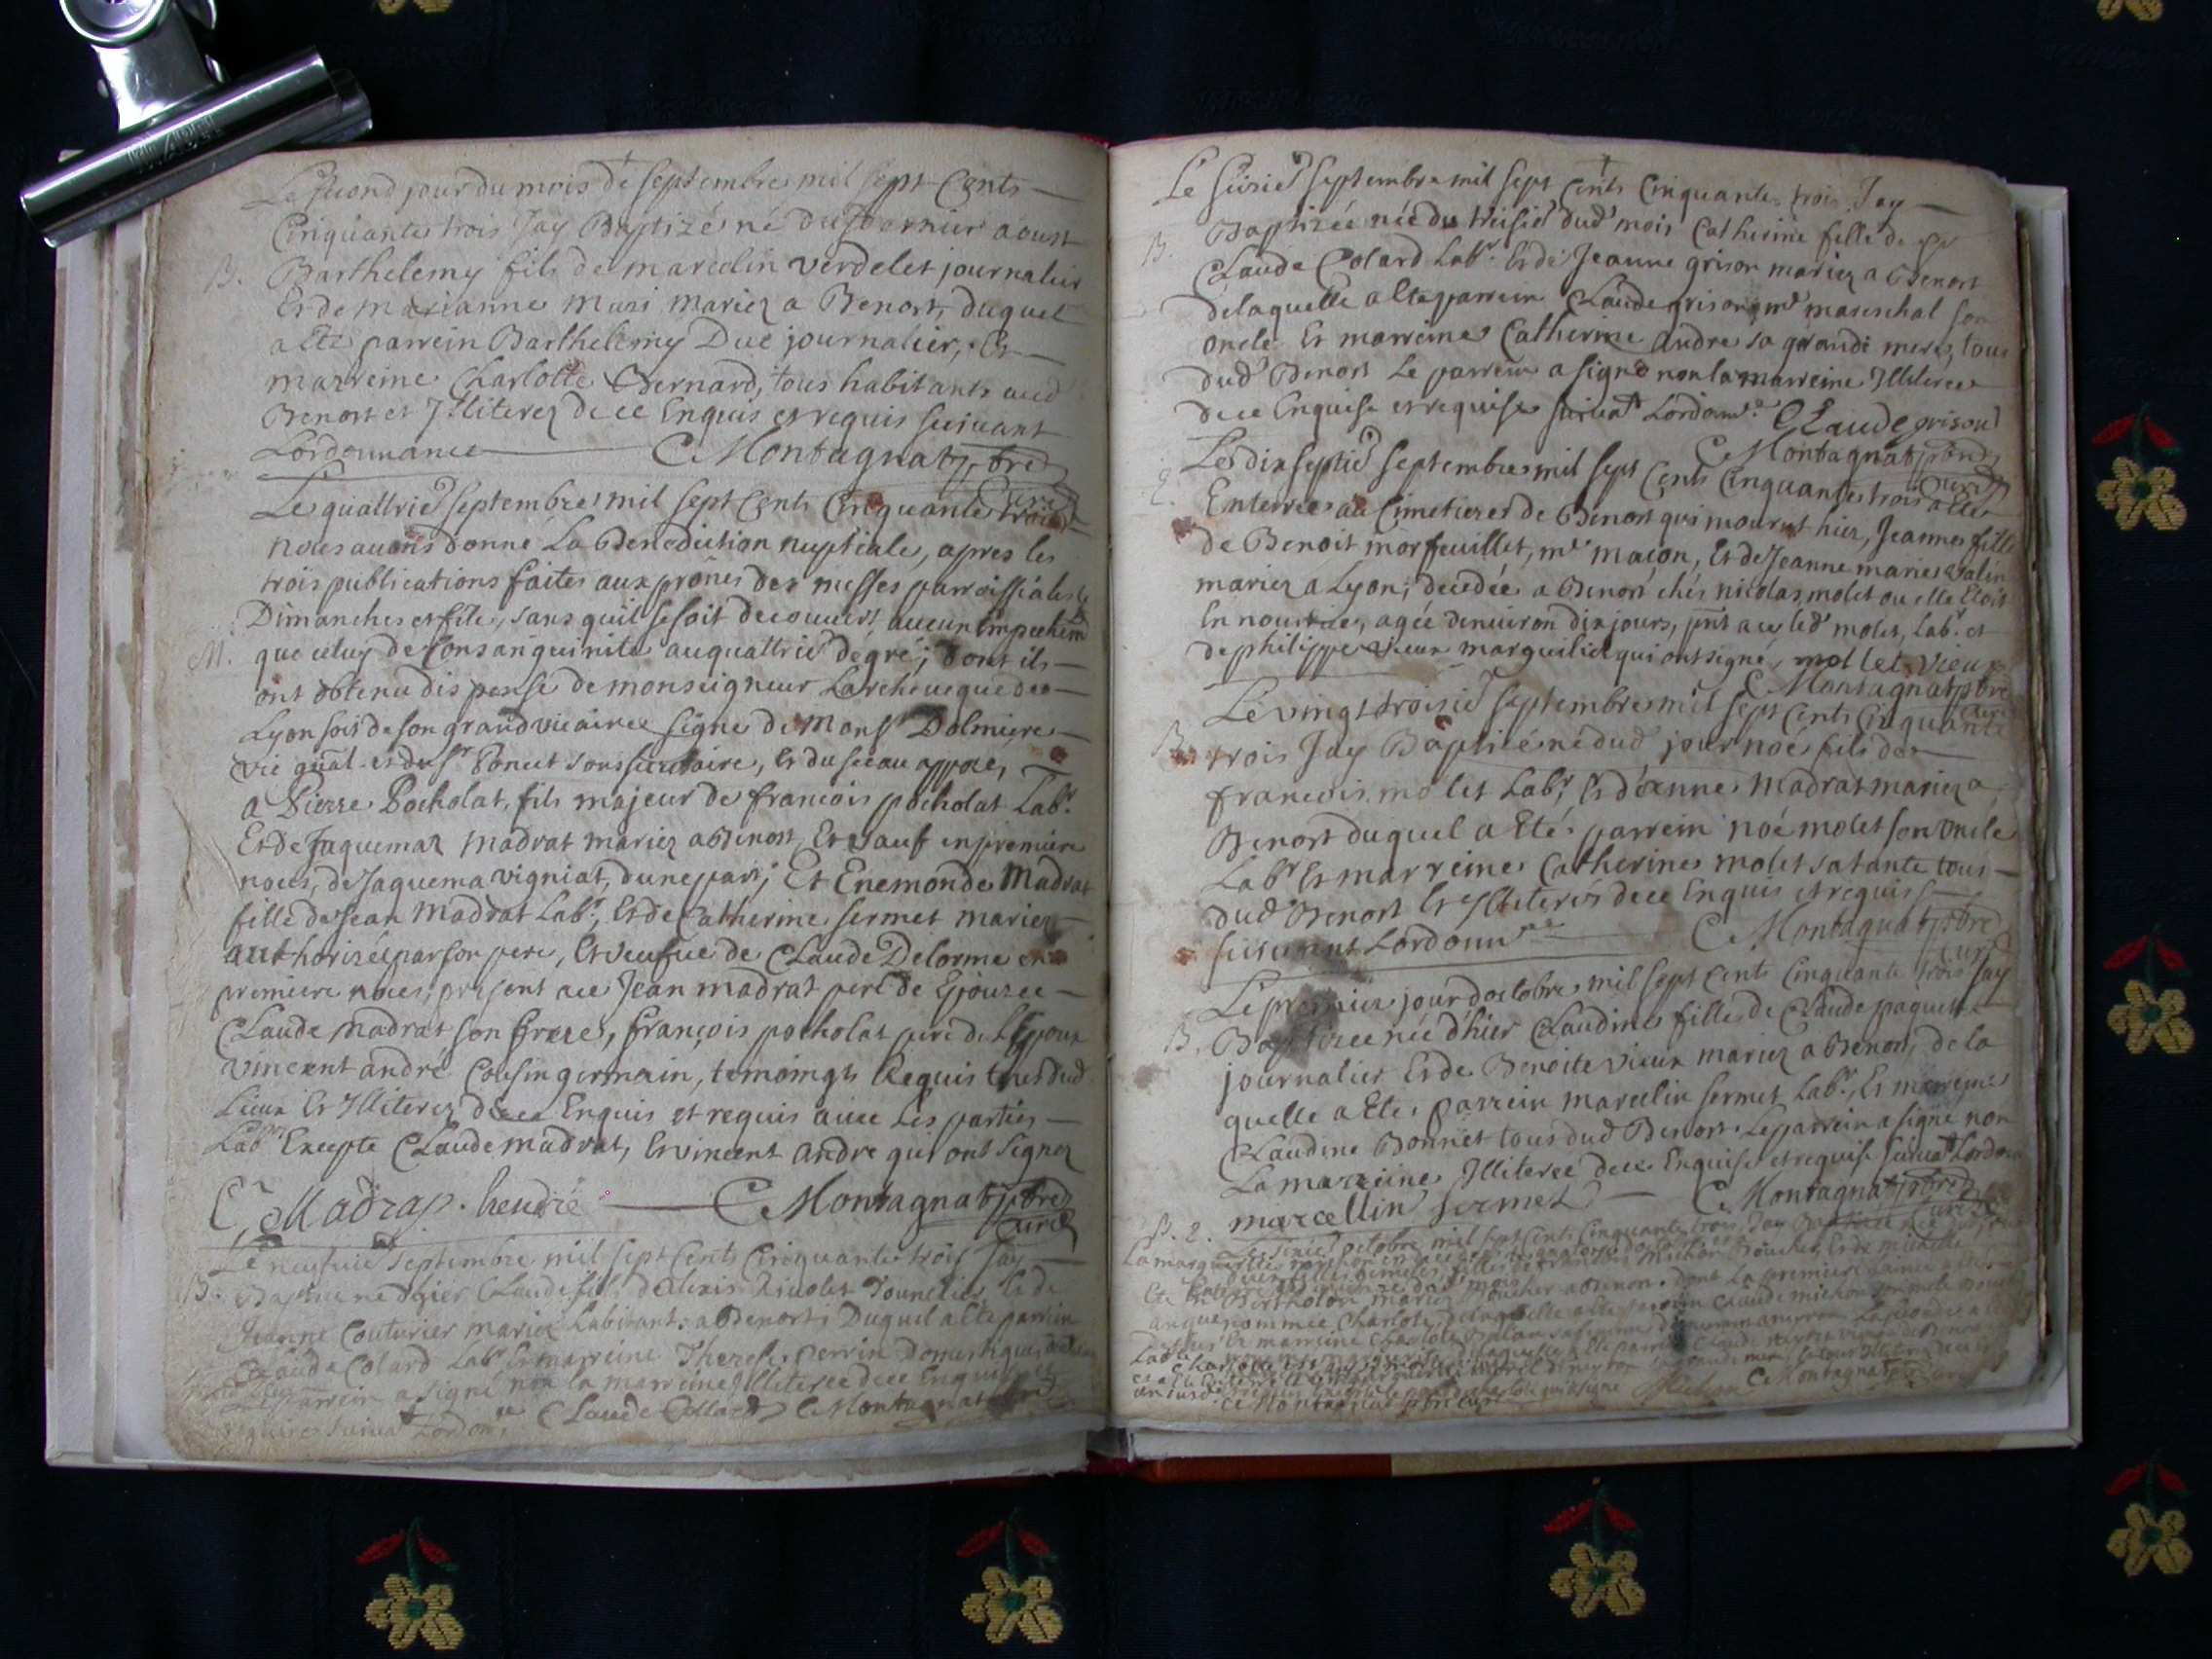 Le second jour du mois de septembre mil sept Cents
Cinquante trois Jay Baptizé né du dernier aoust
B. Barthelemy fils de marcelin verdelet journalier
Et de marianne muzi mariez a Benost, duquel
a Eté parrein Barthelemy Duc journalier, Et
marreine Charlotte Bernard, tous habitants aud
Benost et Illiterez de ce Enquis et requis suivant
Lordonnance C Montagnat ptre
Curé
Le quattrie septembre mil sept Cents Cinquante trois
nous avons donné La Benediction nuptiale, apres les
trois publications faites aux prônes des messes parroissiales
Dimanches et fête, sans quil se soit decouvert aucun Empechem
M. que celuy de Consanguinité au quattrie degré; dont ils
ont obtenu dispense de monseigneur Larcheveque de
Lyon soit de son grand vicaire signé de Monsr Dolmiere
vic gñal et du sr Poncet sous secretaire, Et du sceau apposé,
a Pierre Pocholat, fils majeur de francois pocholat Labr
Et de Jaquema Madrat mariez a Benost, Et vauf en premiere
noces, de Jaquema vigniat, dune part; Et Enemonde Madrat
fille de Jean Madrat Labr, Et de Catherine sermet mariez
authorizée par son pere, Et veufve de Claude Delorme en
premiere noces, present ace Jean madrat pere de Epouzee
Claude Madrat son frere, françois pocholat pere de L Epoux
vincent andré Cousin germain, temoingts Requis tous dud
Lieux Et Illiterez de ce Enquis et requis avec Les parties
Labrs Excepte Claude madrat, Et vincent andre qui ont signez
C, Madrap. heudré C Montagnat ptre
Curé
Le neufvie septembre mil sept Cents Cinquante trois Jay
B. Baptizé né dhier Claude fils dalexis Rivolet Tounelier Et de
Jeanne Couturier mariez habitants a Benost; Duquel a Eté parrein
Claude Colard Labr Et marreine Therese perrin Domestique
Le parrein a signé non la marreine Illiteree de ce Enquise et
requise suivat Lordonce Claude Collard C Montagnat ptre
Le seizie septembre mil sept Cents Cinquante trois Jay
B. Baptizée née du treisie dud mois Catherine fille de
Claude Colard Labr Et de Jeanne grison mariez a Benost
de laquelle a Eté parrein Claude grison mr mareschal son
oncle Et marreine Catherine andre sa grande mere, tous
dud Benost Le parrein a signé non la marreine Illiteree
de ce Enquise et requise suivat Lordonce Claude grison
C Montagnat ptre
Curé
Le dix septie septembre mil sept Cents Cinquante trois a Eté
Enterrée au Cimetiere de Benost qui mourut hier, Jeanne fille
de Benoit morfeuillet, mr maçon, Et de Jeanne marie valin
mariez a Lyon; decedée a Benost chés nicolas molet ou elle Etoit
En nourrice, agée denviron dix jours, pnt ace led molet, Labr et
de philippe vieux marguilier qui ont signé mollet vieux
C Montagnat ptre
Curé
Le vingt troisie septembre mil sept Cents Cinquante
B. trois Jay Baptizé né dud jour noé fils de
francois molet Labr, Et deanne Madrat mariez a
Benost duquel a Eté parrein noé molet son oncle
Labr Et marreine Catherine molet sa tante tous
dud Benost Et Illiterés de ce Enquis et requis
suivant Lordonnce C Montagnat ptre
curé
Le premier jour doctobre mil sept Cents Cinquante trois Jay
B. Baptizee née dhier Claudine fille de Claude paquet
journalier Et de Benoite vieux mariez a Benost, de la
quelle a Eté parrein marcelin sermet Labr, Et marreine
Claudine Bonnet tous dud Benost. Le parrein a signé non
La marreine Illiteree de ce Enquise et requise suivat Lordonce
marcellin sermet C Montagnat ptre
Curé
B. 2. Le octobre mil sept Cents Cinquante trois Jay Baptizé
C Montagnat
C Montagnat ptre curé